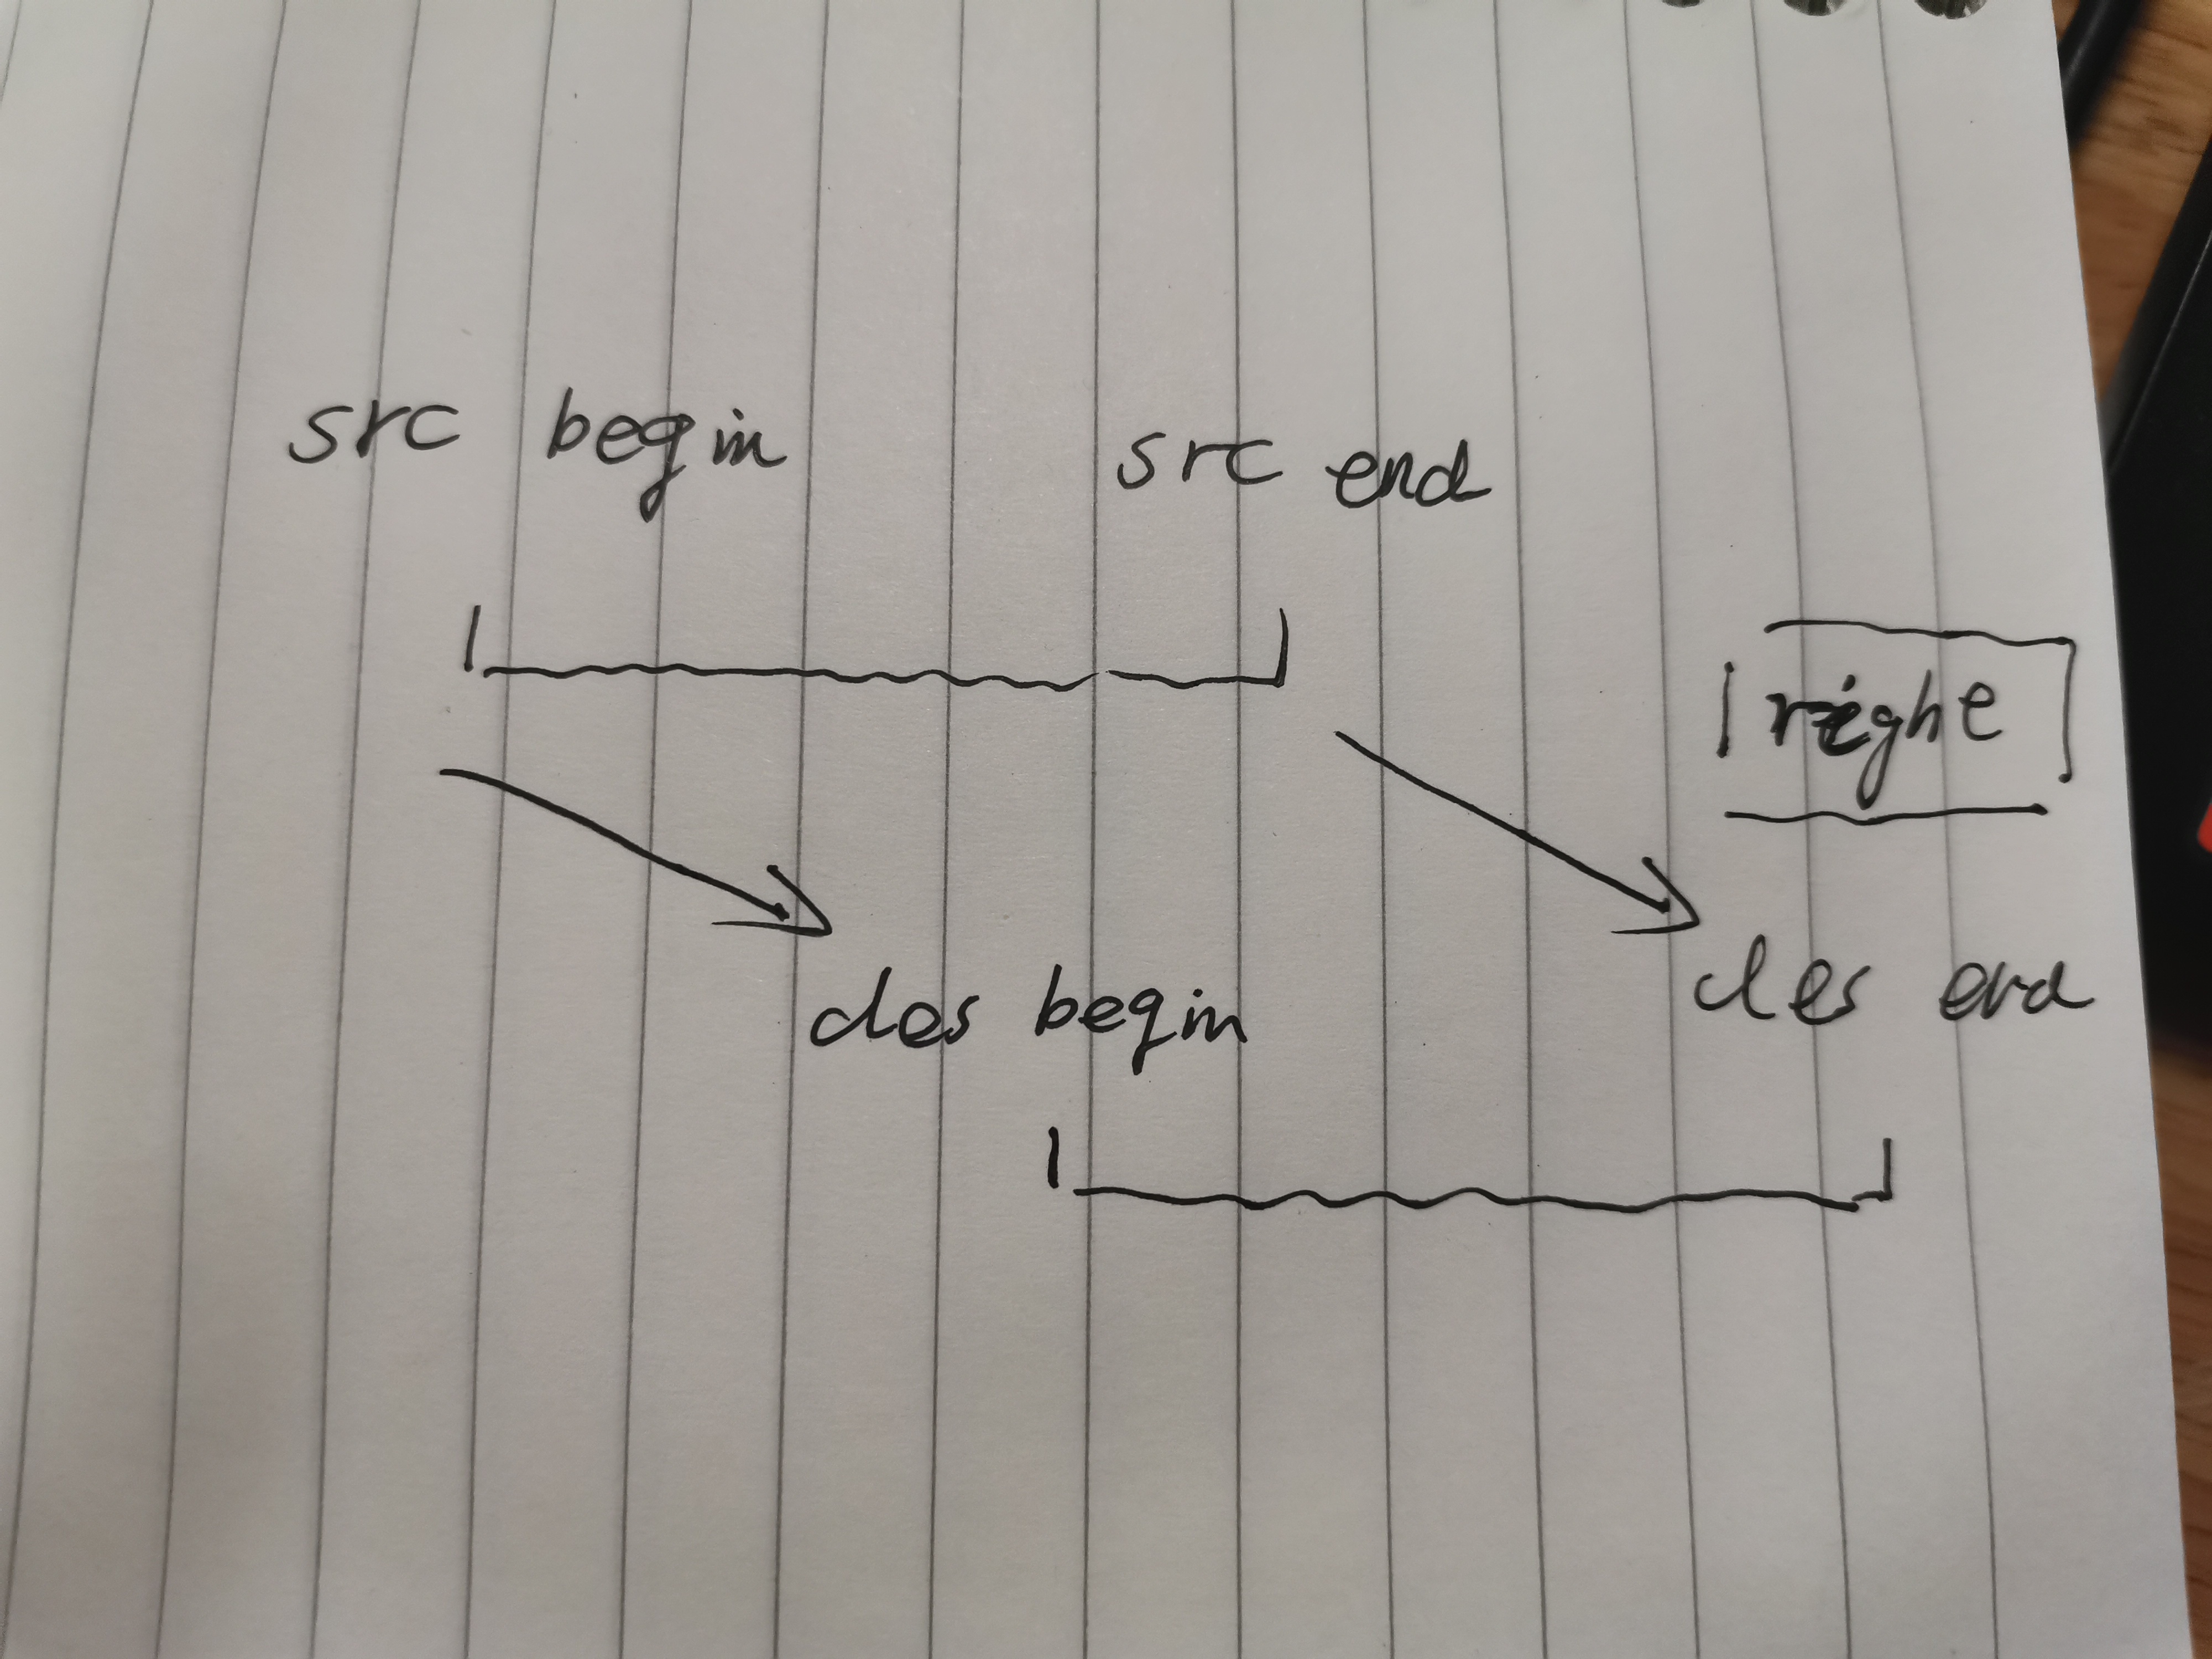 src begin
src end
right
des begin
des end